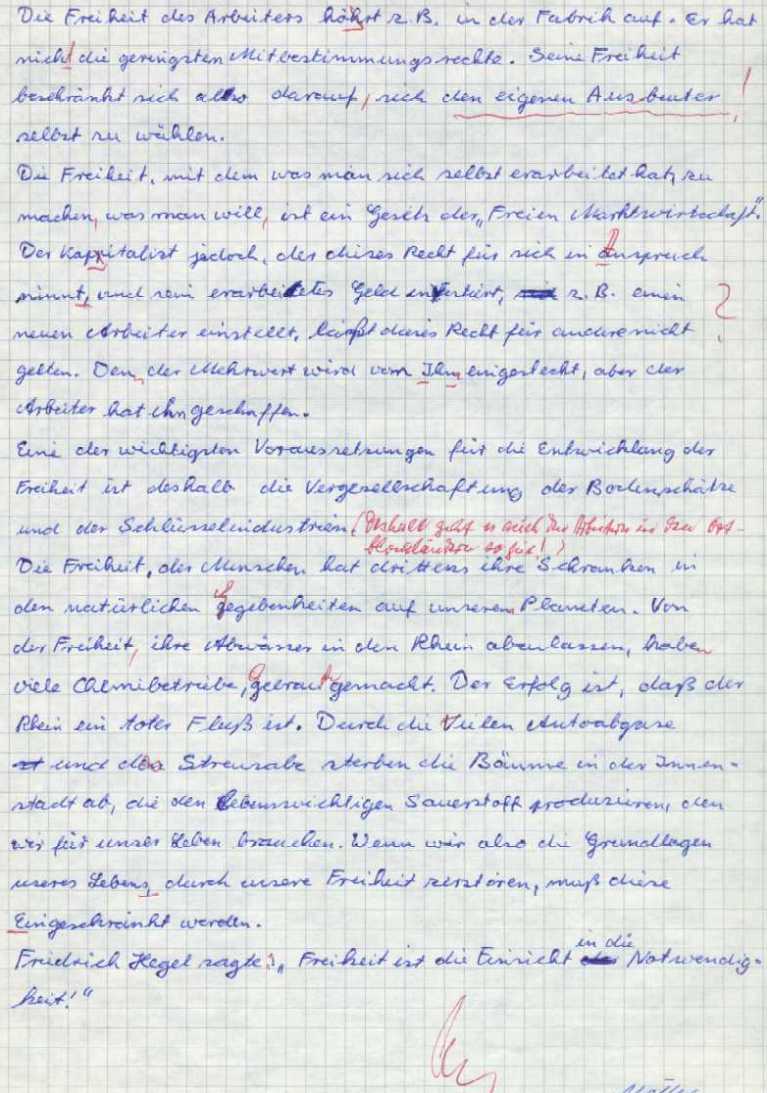 Die Freiheit des Arbeiters höhrt z.B. in der Fabrik auf. Er hat
nicht die geringsten Mitbestimmungsrechte. Seine Freiheit
beschränkt sich also darauf, sich den eigenen Ausbeuter !
selbst zu wählen.
Die Freiheit, mit dem was man sich selbst erarbeitet hat, zu
machen, was man will, ist ein Gesetz der „Freien Marktwirtschaft".
Der Kappitalist jedoch, der dises Recht für sich in Anspruch
nimmt, und sein erarbeitetes Geld investiert, z.B. einen ?
neuen Arbeiter einstellt, läßt dieses Recht für andere nicht
gelten. Den, der Mehrwert wird vom Ihm eingesteckt, aber der
Arbeiter hat ihn geschaffen.
Eine der wichtigsten Voraussetzungen für die Entwicklang der
Freiheit ist deshalb die Vergesellschaftung der Bodenschätze
und der Schlüsselindustrien (Deshalb geht es auch den Arbeitern in den Ost-
blockländern so gut!)
Die Freiheit, des Menschen hat drittens ihre Schranken in
den natürlichen gegebenheiten auf unserem Planeten. Von
der Freiheit, ihre Abwässer in den Rhein abzulassen, haben
viele Chemibetriebe, gebraut gemacht. Der Erfolg ist, daß der
Rhein ein toter Fluß ist. Durch die Vielen Autoabgase
und das Streusalz sterben die Bäume in der Innen-
stadt ab, die den lebenswichtigen Sauerstoff produzieren, den
wir für unser Leben brauchen. Wenn wir also die Grundlagen
useres Lebens, durch unsere Freiheit zerstören, muß diese
Eingeschränkt werden.
Friedrich Hegel sagte: „Freiheit ist die Einsicht in die Notwendig-
keit!"